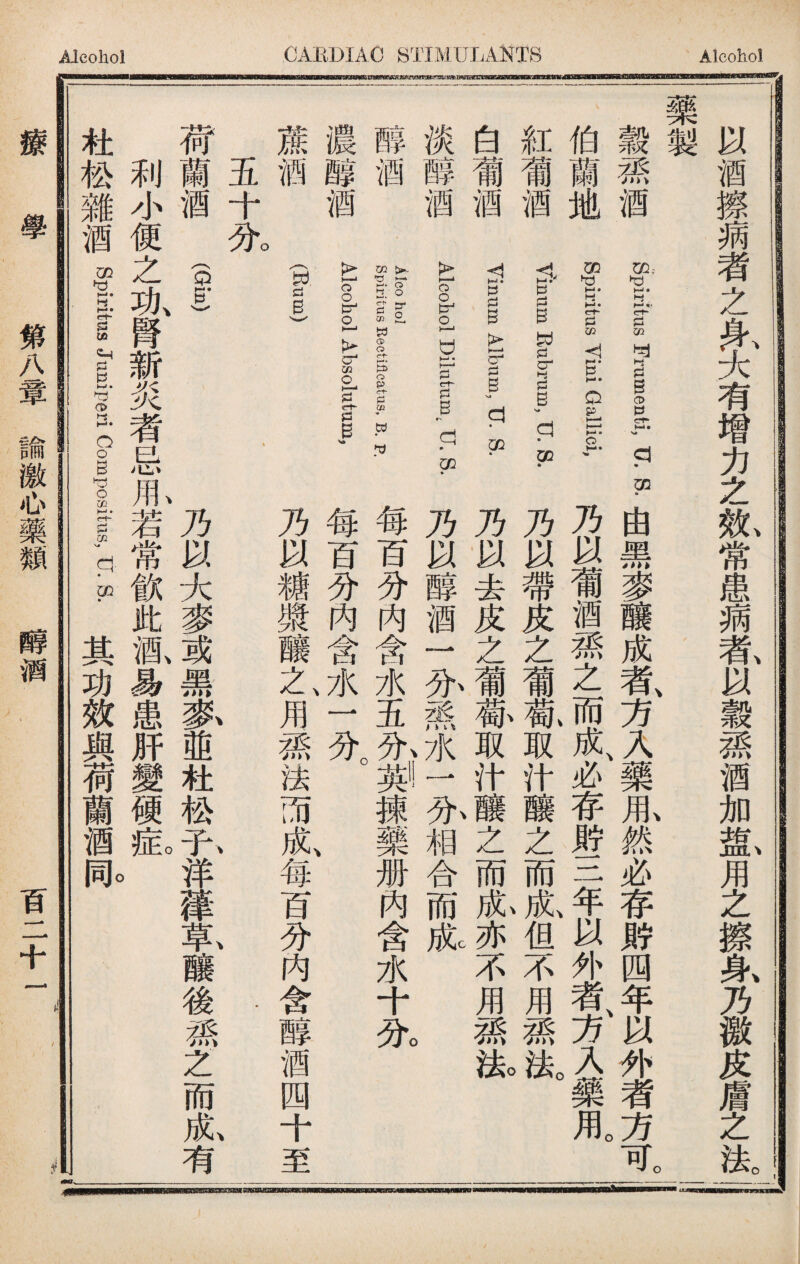 Alcohol CARDIAC STIMULANTS Alcohol
以酒擦病者之身、大有增力之效、常患病者、以穀烝酒加塩、用之擦身、乃激皮膚之法。
藥製
穀烝酒 Spiritus Frumenti, U. S. 由黑麥釀成者、方入藥用、然必存貯四年以外者方可。
伯蘭地 Spiritus Vini Gallici, 乃以葡酒烝之而成、必存貯三年以外者、方入藥用。
紅葡酒 Vinum Rubrum, U. S. 乃以帶皮之葡萄、取汁釀之而成、但不用烝法。
白葡酒 Vinum Album, U. S. 乃以去皮之葡萄、取汁釀之而成、亦不用烝法。
淡醇酒 Alcohol Dilutum, U. S. 乃以醇酒一分、烝水一分、相合而成。
醇酒 Alcohol Spiritus Rectificatus, B. P. 每百分內含水五分、英揀藥册內含水十分。
濃醇酒 Alcohol Absolutum, 每百分內含水一分。
蔗酒 (Rum) 乃以糖漿釀之、用烝法而成、每百分內含醇酒四十至
五十分。
荷蘭酒 (Gin) 乃以大麥或黑麥、並杜松子、洋葎草、釀後烝之而成、有
利小便之功、腎新炎者忌用、若常飮此酒、易患肝變硬症。
杜松雜酒 Spiritus Juniperi Compositus, U. S. 其功效與荷蘭酒同。
療學 第八章 論激心藥類 醇酒 百二十一